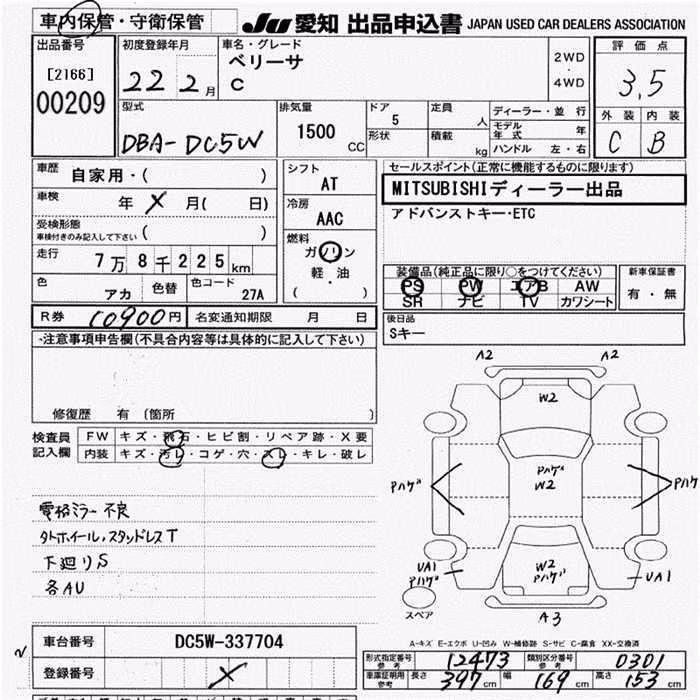 車内保管・守衛保管 JU 愛知 出品申込書 JAPAN USED CAR DEALERS ASSOCIATION
出品番号 初度登録年月 車名・グレード 評価点
[2166] 22 2月 ベリーサ 2WD・4WD 3.5
00209 C
型式 排気量 ドア 定員 ディーラー・並行 外装 内装
DBA-DC5W 1500CC 5 人 モデル年式 年 C B
形状 積載 kg ハンドル 左・右
車歴 自家用・( ) シフト セールスポイント(正常に機能するものに限ります)
AT MITSUBISHIディーラー出品
車検 年 X 月( 日) 冷房 アドバンストキー・ETC
受検形態 AAC
車検付きのみ記入して下さい ( )
走行 7万8千225km 燃料 ガソリン 軽・油 ( )
装備品(純正品に限り○をつけてください) 新車保証書
色 アカ 色替 色コード 27A PS PW エアB AW 有・無
SR ナビ TV カワシート
R券 10900円 名変通知期限 月 日 後日品
Sキー
・注意事項申告欄(不具合内容等は具体的に記入して下さい)
修復歴 有 (箇所 )
検査員記入欄 FW キズ・飛石・ヒビ割・リペア跡・X要
内装 キズ・汚レ・コゲ・穴・スレ・キレ・破レ
電格ミラー不良
タトホイール,スタッドレスT
下廻りS
各AU
A2 A2
W2
Pハゲ Pハゲ W2 Pハゲ
UA1 Pハゲ W2 Pハゲ UA1
スペア A3
A-キズ E-エクボ U-凹み W-補修跡 S-サビ C-腐食 XX-交換済
車台番号 DC5W-337704
登録番号 X
形式指定番号 参考 12473 類別区分番号 参考 0301
車庫証明用 参考 長さ 397cm 幅 169cm 高さ 153cm